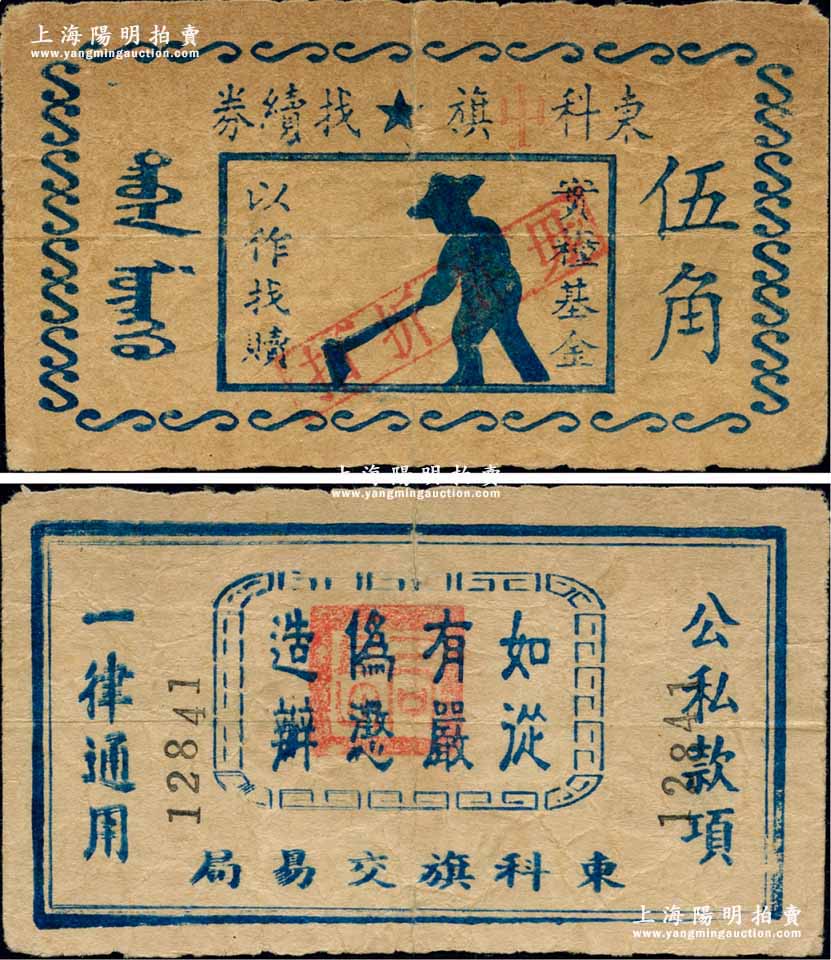 上海陽明拍賣
www.yangmingauction.com
東科中旗★找續券
伍角
實種基金
以作找贖
折
上海陽明拍賣
www.yangmingauction.com
公私款項
如有偽造
從嚴懲辦
一律通用
12841
12841
東科旗交易局
上海陽明拍賣
www.yangmingauction.com